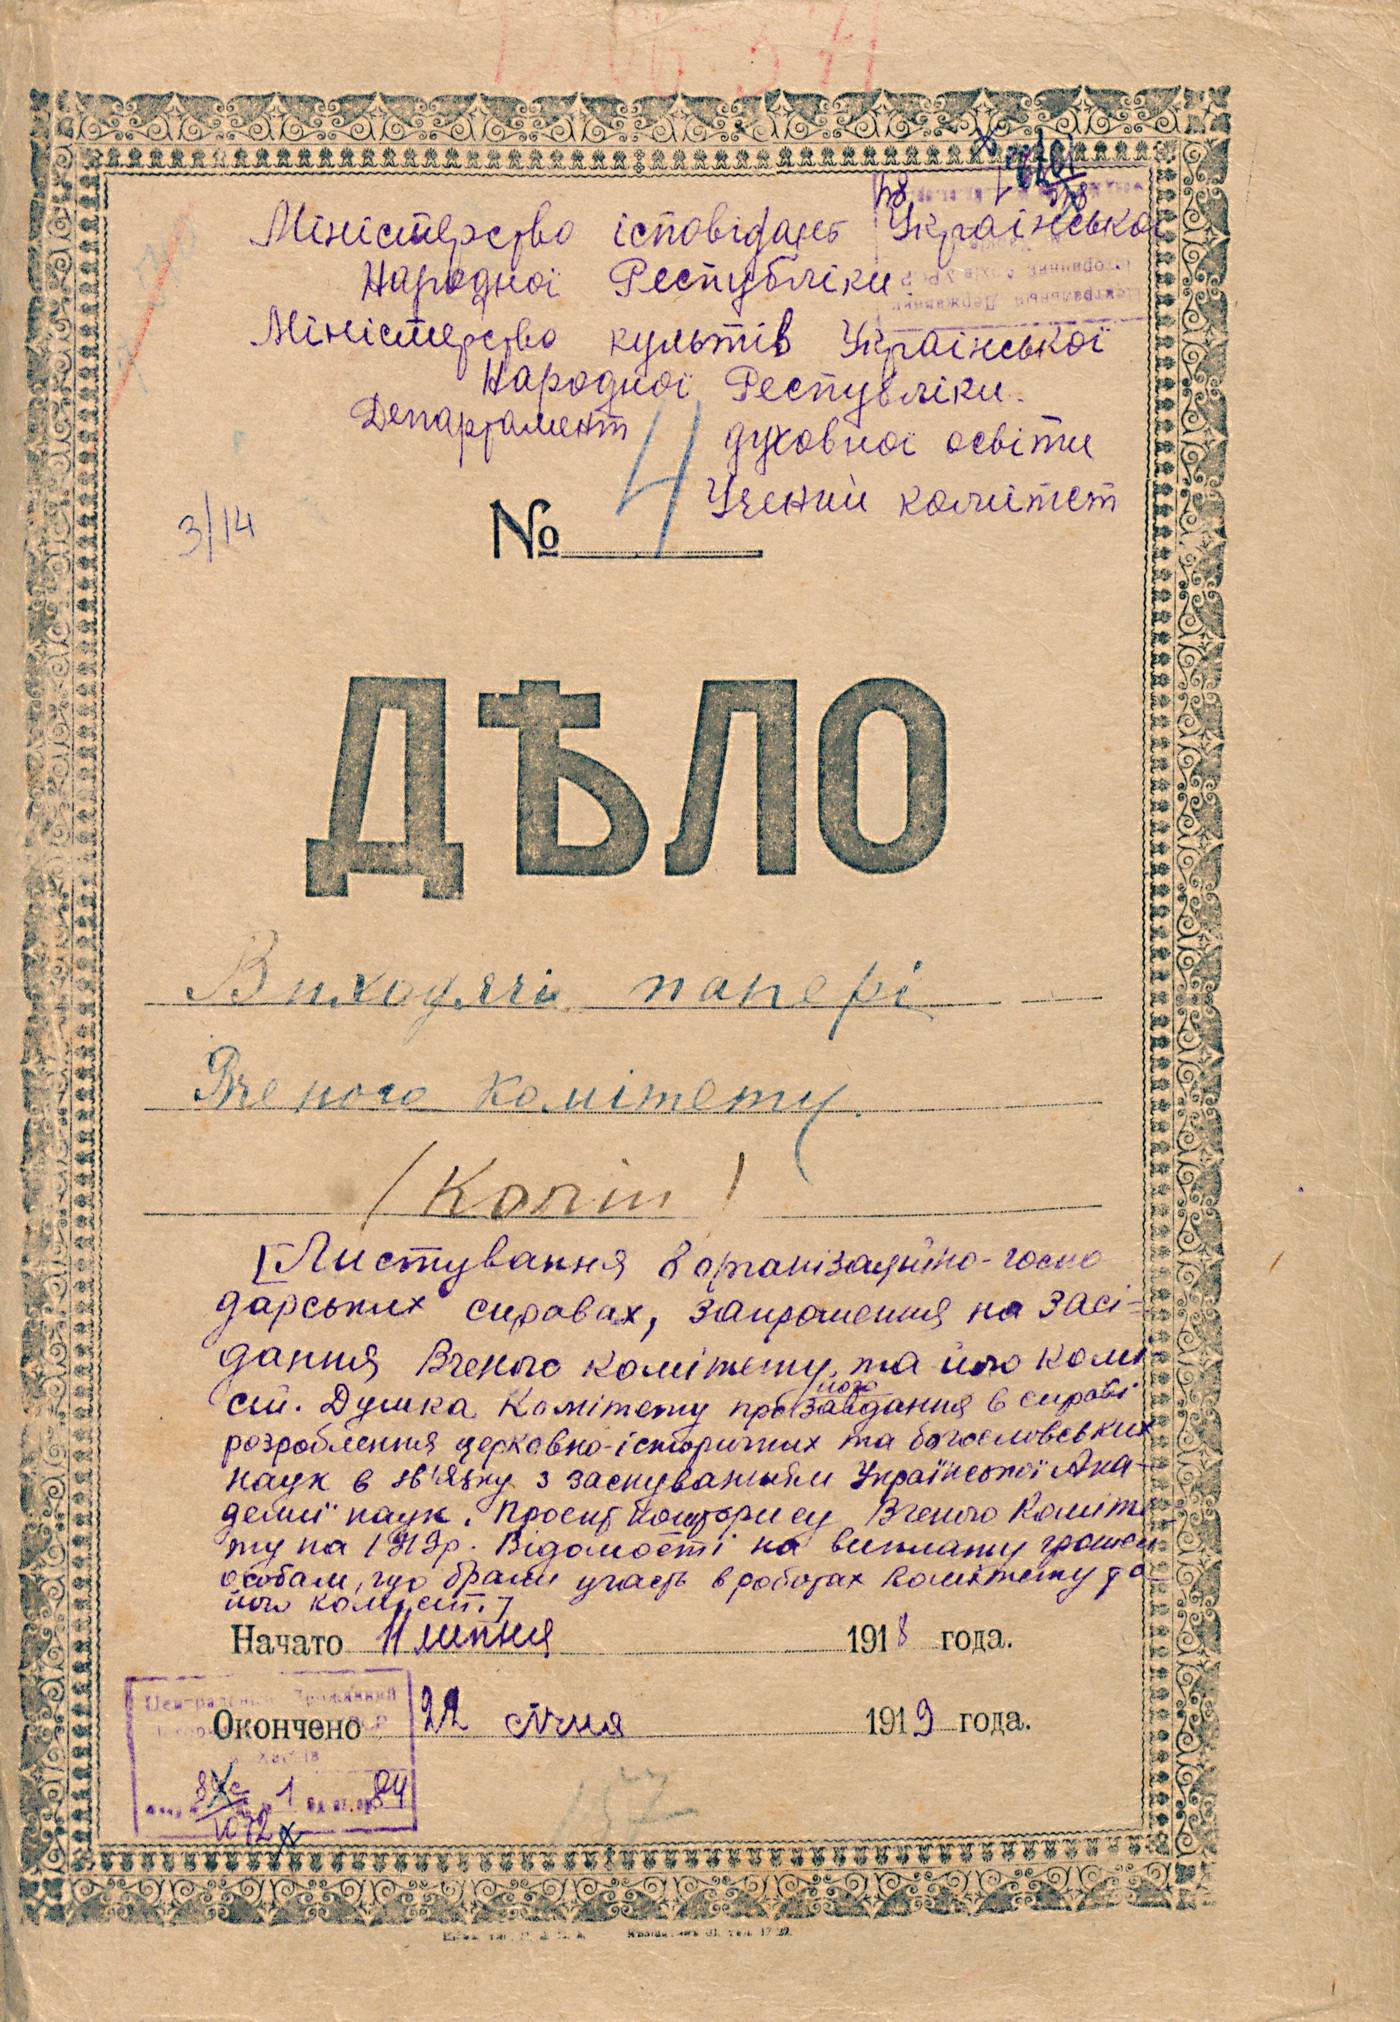 Міністерство ісповідань Української
Народної Республіки.
Міністерство культів Української
Народної Республіки.
Департамент духовної освіти
Учений комітет
3/14
№ 4
ДѢЛО
Виходячі папері
Вченого комітету.
/Копіи/
[Листування в організаційно-госпо
дарських справах, запрошення на засі-
дання Вченого комітету та його комі
сій. Думка Комітету про його завдання в справі
розроблення церковно-історичних та богословських
наук в зв'язку з заснуванням Української Ака-
демії наук. Проект кошторису Вченого Коміте
ту на 1919р. Відомості на виплату грошей
особам, що брали участь в роботах Комітету та
його комісій.]
Начато 11 липня 1918 года.
Окончено 22 січня 1919 года.
Центральний Державний
1 84
1072